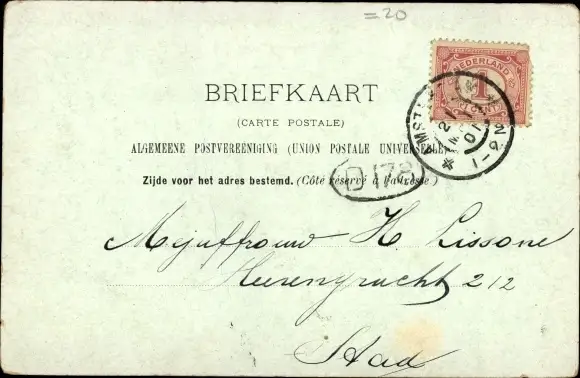 =20
NEDERLAND
1
BRIEFKAART
(CARTE POSTALE)
ALGEMEENE POSTVEREENIGING (UNION POSTALE UNIVERSELLE)
Zijde voor het adres bestemd. (Côté réservé à l'adresse.)
D 178
Mejuffrouw H. Lissone
Heerengracht 212
Stad